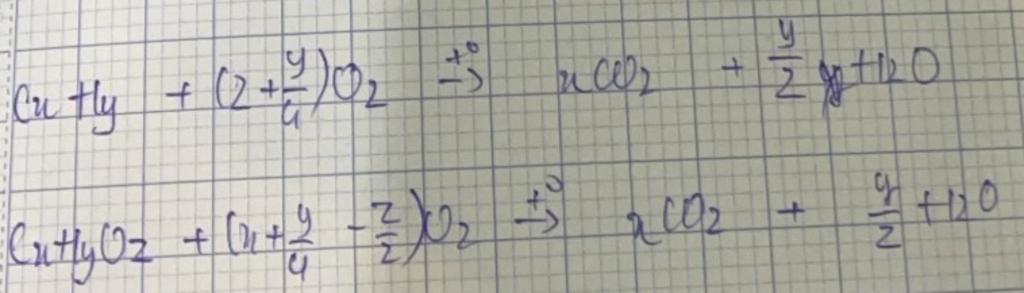 CxHy + (2 + y/4)O2 →(t°) xCO2 + y/2 H2O
CxHyOz + (x + y/4 - z/2)O2 →(t°) xCO2 + y/2 H2O